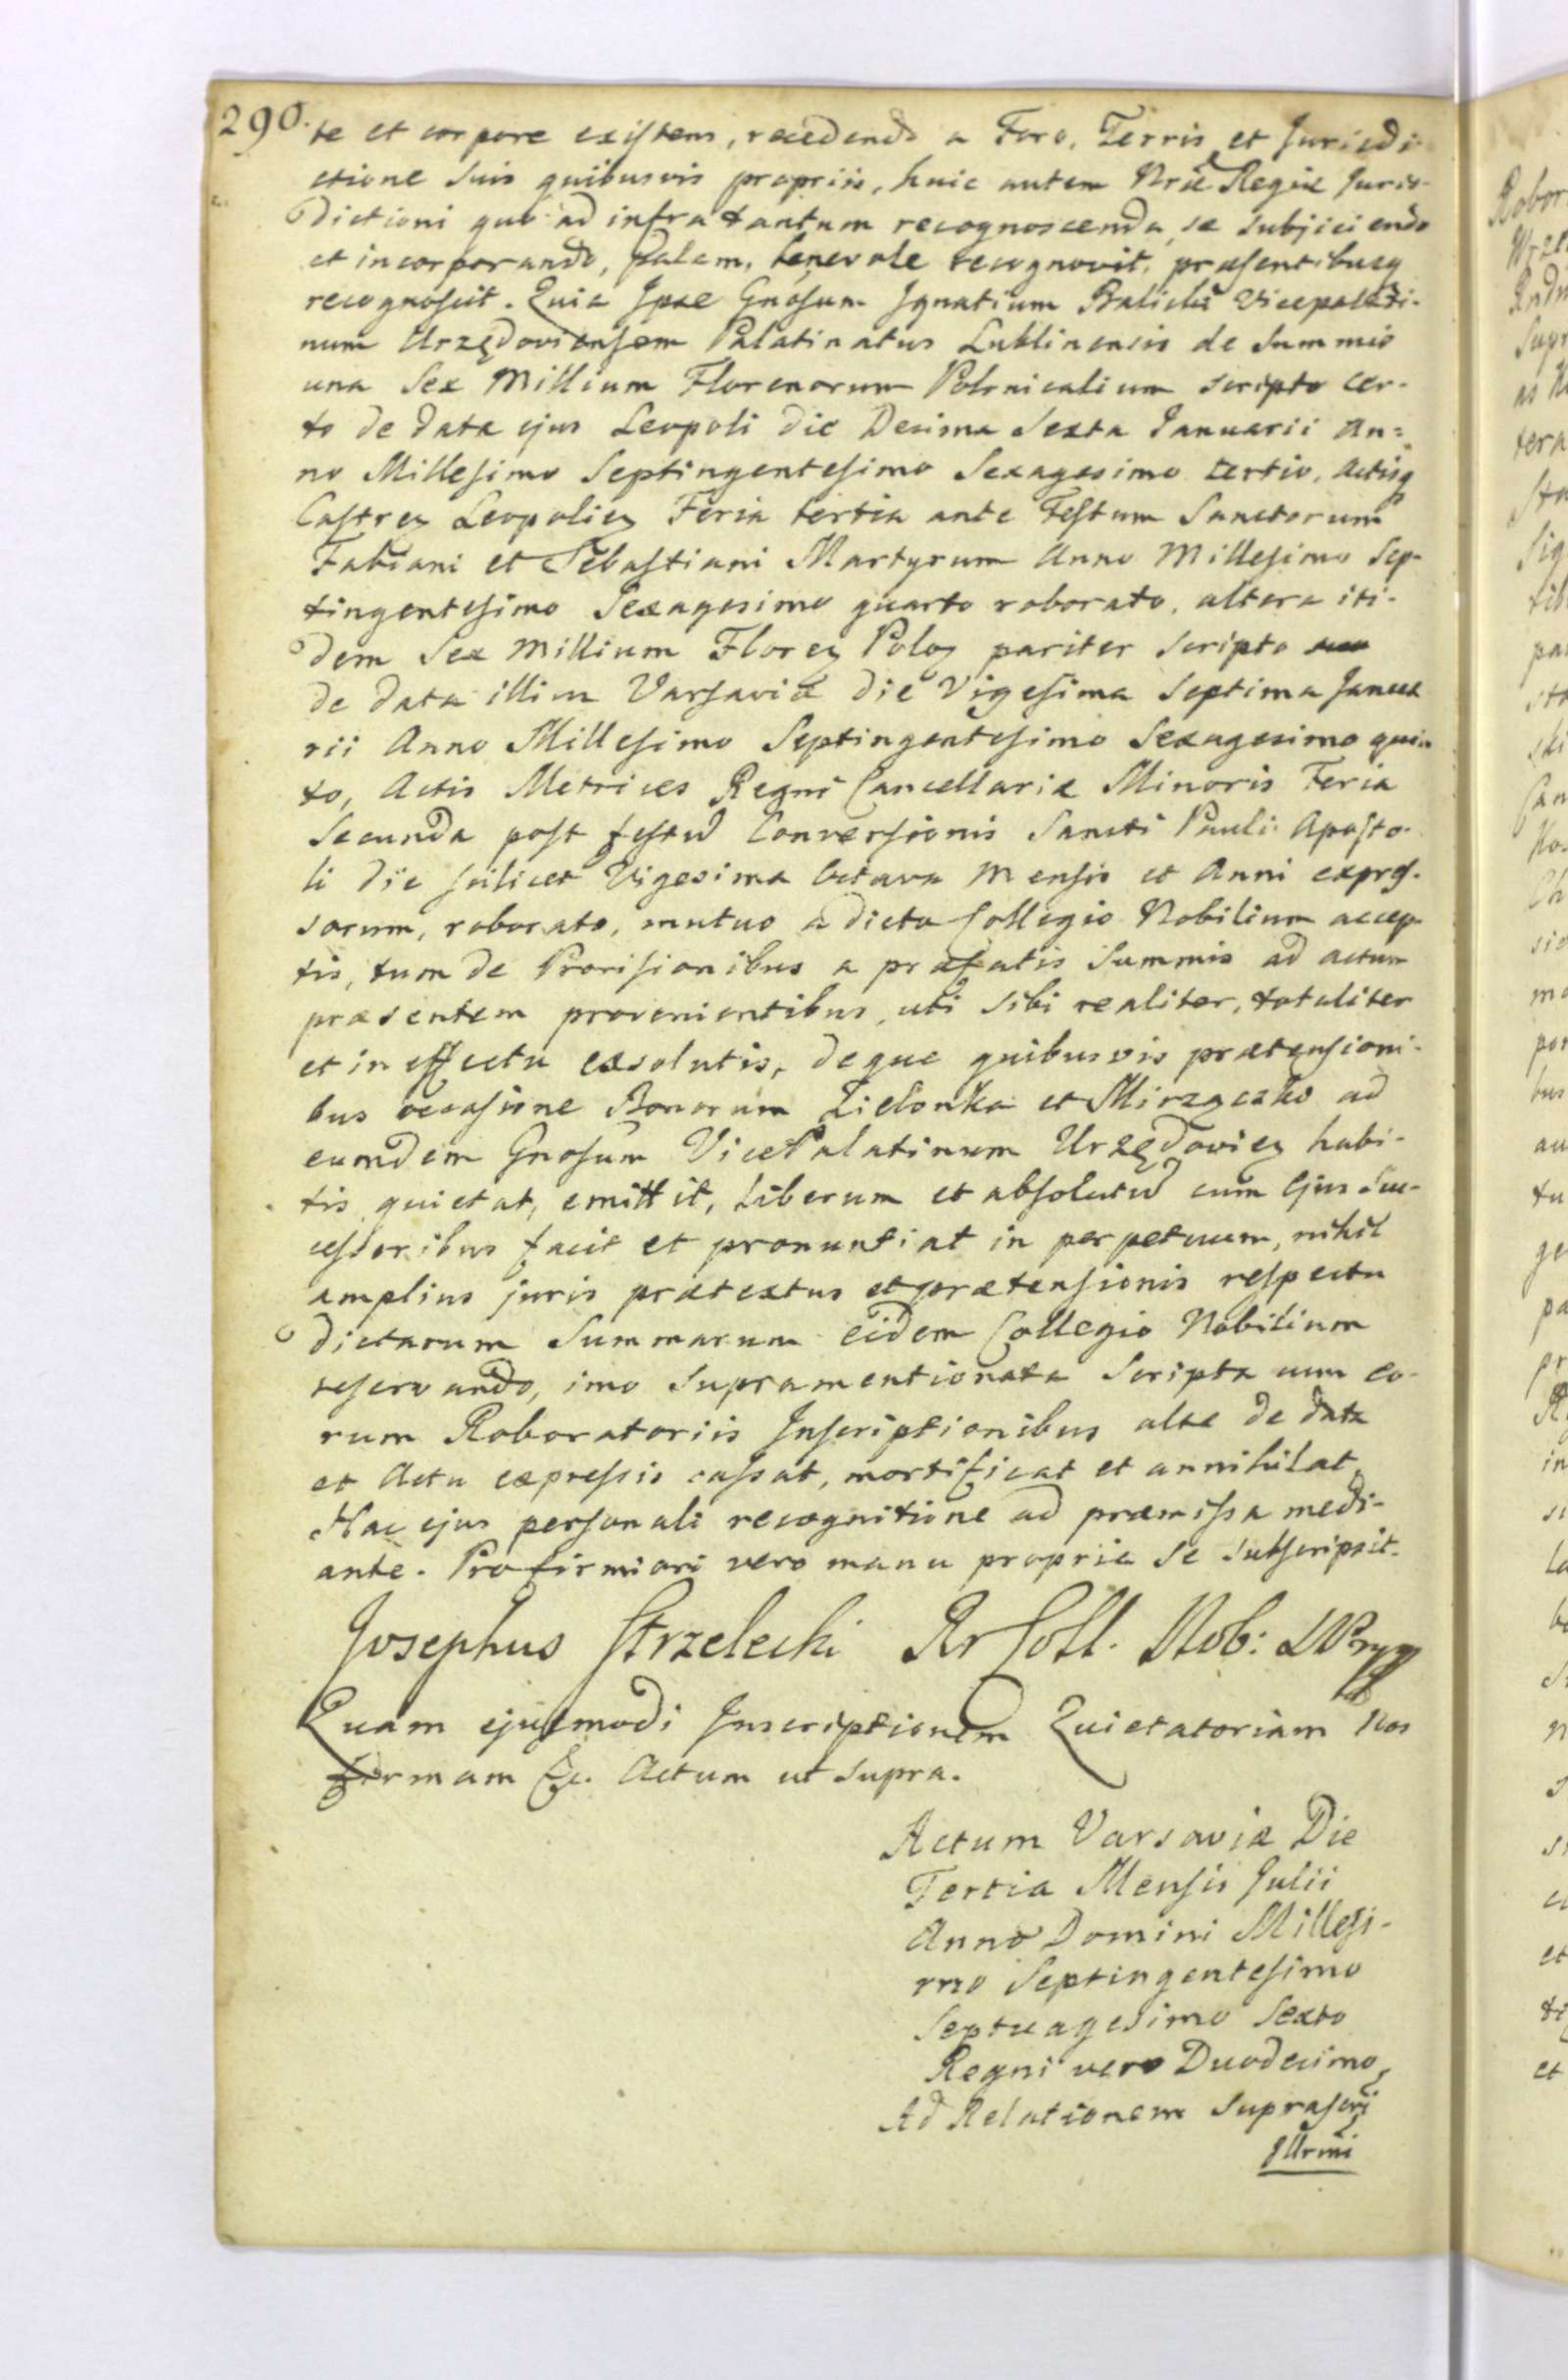 290.
te et corpore existens, recedendo a Foro, Terris et Jurisdi-
ctione Suis quibusvis propriis, huic autem Nræ Regiæ Juris-
dictioni quo ad infra tantum recognoscenda, se subjiciendo
et incorporando, palam, benevole recognovit, præsentibusq
recognoscit. Quia Ipse Gnosum Ignatium Balicki Vicepalati-
num Urzędoviensem Palatinatus Lublinensis de Summis
una Sex Millium Florenorum Polonicalium scripto cer-
to de data ejus Leopoli die Decima Sexta Januarii An=
no Millesimo Septingentesimo Sexagesimo tertio, Actisq
Castrez Leopoliez Feria tertia ante Festum Sanctorum
Fabiani et Sebastiani Martyrum Anno Millesimo Sep-
tingentesimo Sexagesimo quarto roborato, altera iti-
dem Sex Millium Florez Poloz pariter Scripto
de data illius Varsaviæ die Vigesima Septima Janua
rii Anno Millesimo Septingentesimo Sexagesimo quin
to, Actis Metrices Regni Cancellariæ Minoris Feria
Secunda post festū Conversionis Sancti Pauli Aposto-
li die scilicet Vigesima Octava Mensis et Anni expres-
sorum, roborato, mutuo a dicto Collegio Nobilium accep-
tis, tum de Provisionibus a præfatis Summis ad actum
præsentem provenientibus, uti sibi realiter, totaliter
et in effectu exsolutis, deque quibusvis prætensioni-
bus occasione Bonorum Zielonka et Mirzączko ad
eumdem Gnosum VicePalatinum Urzędoviez habi-
tis quietat, emittit, liberum et absolutū cum Ejus Suc-
cessoribus facit et pronuntiat in perpetuum, nihil
amplius juris prætextus et prætensionis respectu
dictarum Summarum eidem Collegio Nobilium
reservando, imo Supramentionata Scripta cum eo-
rum Roboratoriis Inscriptionibus alte de data
et Actu expressis cassat, mortificat et annihilat.
Hac ejus personali recognitione ad præmissa medi-
ante. Pro firmiori vero manu propria Se Subscripsit.
Josephus Strzelecki Rr Coll. Nob:
Quam ejusmodi Inscriptionem Quietatoriam Nos
firmam &c. Actum ut supra.
Actum Varsaviæ Die
Tertia Mensis Julii
Anno Domini Millesi-
mo Septingentesimo
Septuagesimo Sexto
Regni vero Duodecimo
Ad Relationem Suprascri
Illrmi